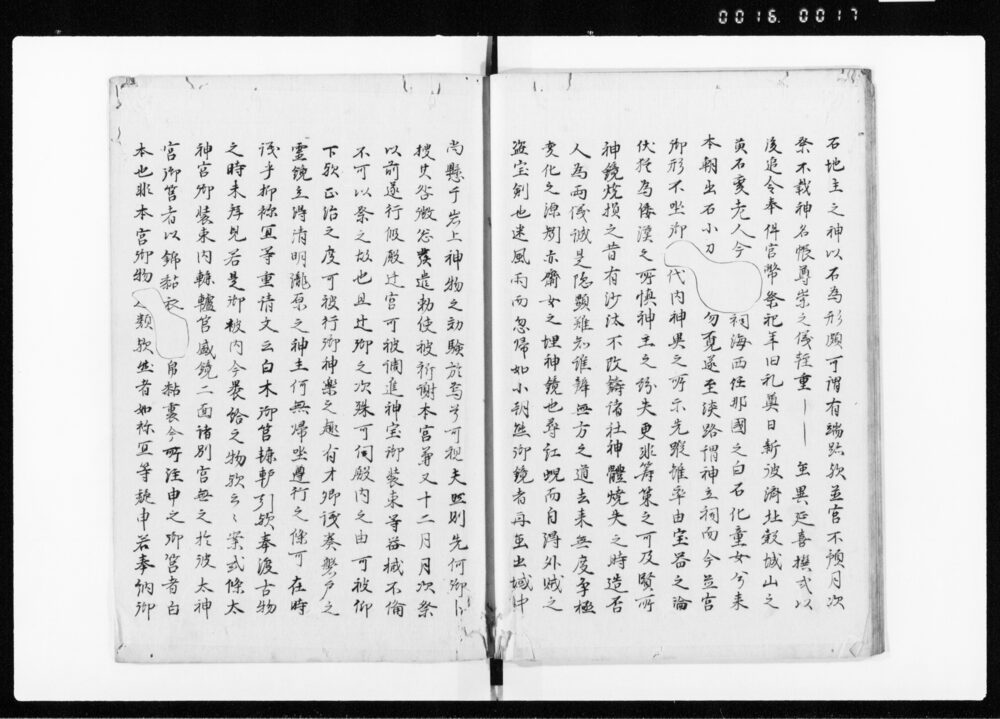 0016. 0017
石地主之神以石為形頗可謂有端跡歟並官不預月次
祭不載神名帳尊崇之儀軽重—— 無異延喜撰式以
後追令奉件宮幣祭祀年旧礼奠日新彼済北穀城山之
黄石変老人今 祠海西任那国之白石化童女兮来
本朝出石小刀 勿覓遂至淡路謂神立祠而今並宮
御形不坐御 代内神異之所示先蹤惟率由宝器之論
伏猶為倭漢之所慎神主之紛失更非筹策之可及賢所
神鏡焼損之昔有沙汰不改鋳諸社神体焼失之時造否
人為両儀誠是隠顕難知誰辨無方之道去来無度孚極
変化之源別亦斎女之埋神鏡也尋江蜺而自得外賊之
盗宝剣也迷風雨而忽帰如小朔然御鏡者再無出域中
尚懸于岩上神物之効験於焉兮可視夫然則先何御卜
捜其咎徴怱發遣勅使被祈謝本宮第又十二月月次祭
以前遂行仮殿迁宮可被調進神宝御装束等器械不備
不可以祭之故也且迁御之次殊可伺殿内之由可被仰
下歟正治之度可被行御神楽之趣有才卿議奏磐戸之
霊鏡立得清明瀧原之神主何無帰坐遵行之條可 在時
議乎抑祢宜等重請文云白木御筥轆轤引歟奉渡古物
之時未拜見若是御被内今畧餝之物歟云々案式條太
神宮御装束内轆轤筥盛鏡二面諸別宮無之於彼太神
宮御筥者以錦黏衣 帛黏裏今所注申之御筥者白
本也非本宮御物 類歟然者如祢宜等施申若奉納御